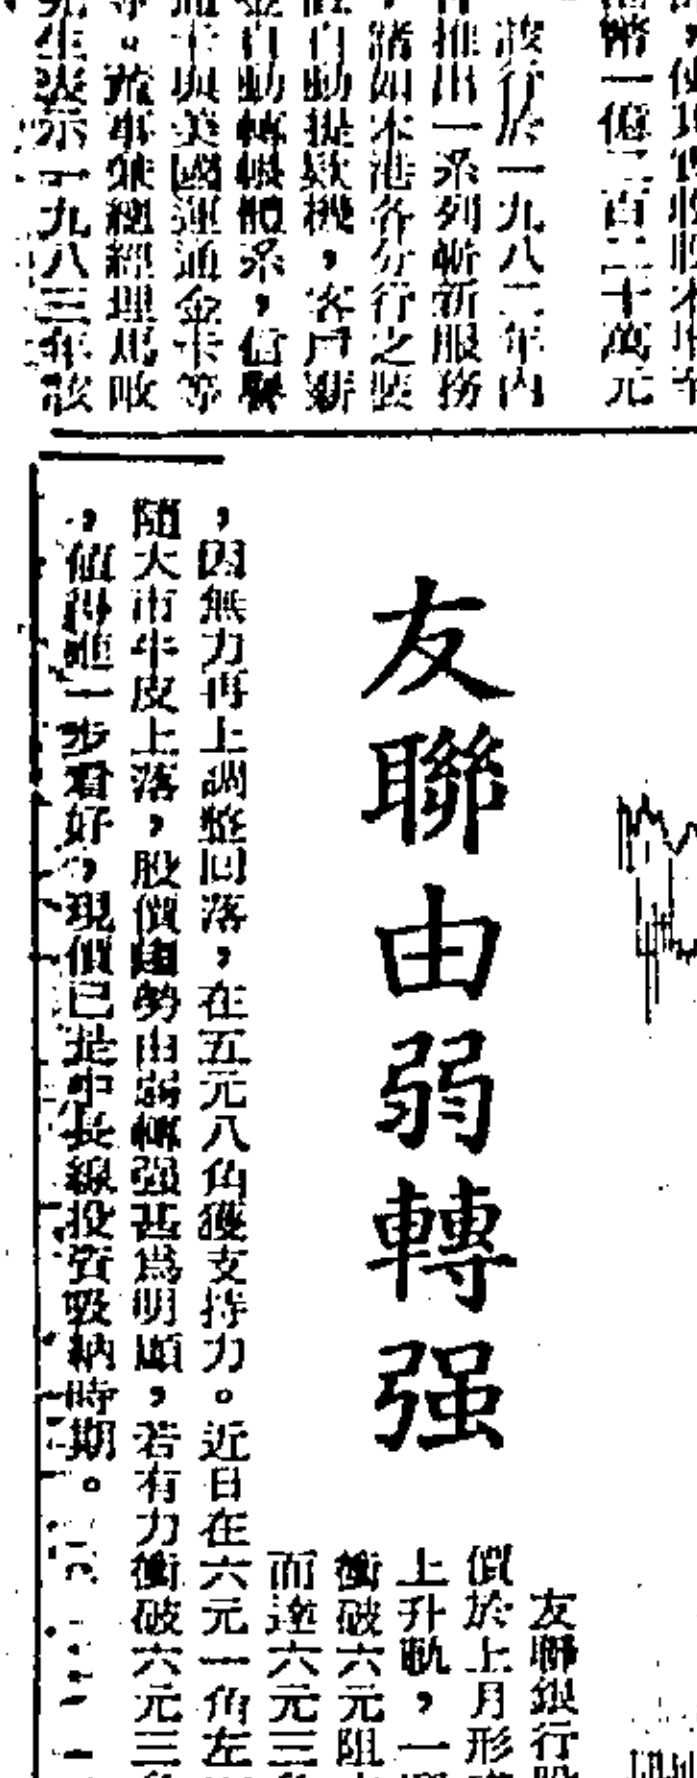 幣一億二百二十萬元
該行於一九八二年內
推出一系列嶄新服務
諸如本港各分行之裝
自動提欵機，客戶薪
自動轉賬體系，信聯
卡與美國運通金卡等
。董事兼總經理馬
先生表示一九八三年該
友聯由弱轉强
友聯銀行股
價於上月形
上升軌，一
衝破六元阻
而達六元三
，因無力再上調整回落，在五元八角獲支持力。近日在六元一角左
隨大市牛皮上落，股價趨勢由弱轉强甚爲明顯，若有力衝破六元三
，値得進一步看好，現價已是中長線投資吸納時期。